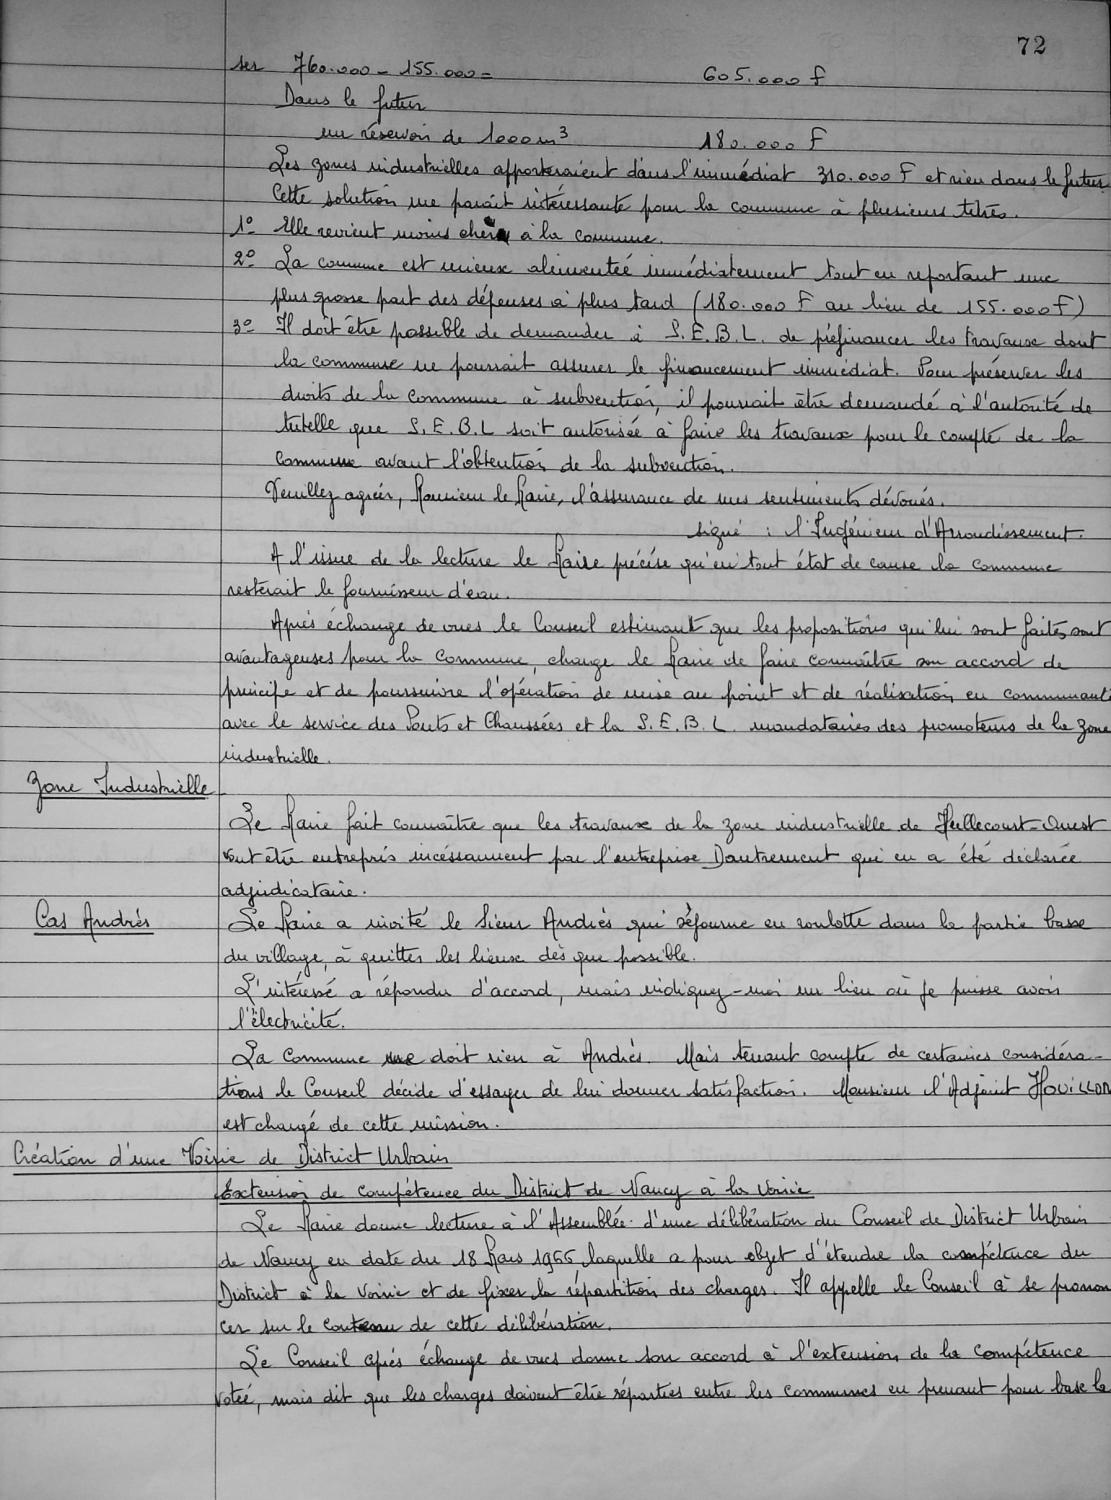 72
ser 760.000 - 155.000 = 605.000 F
Dans le futur
un réservoir de 1000 m³ 180.000 F
Les zones industrielles apporteraient dans l'immédiat 310.000 F et rien dans le futur.
Cette solution me paraît intéressante pour la commune à plusieurs titres.
1° Elle revient moins cher à la commune.
2° La commune est mieux alimentée immédiatement tout en reportant une
plus grosse part des dépenses à plus tard (180.000 F au lieu de 155.000 F)
3° Il doit être possible de demander à S.E.B.L. de préfinancer les travaux dont
la commune ne pourrait assurer le financement immédiat. Pour préserver les
droits de la commune à subvention, il pourrait être demandé à l'autorité de
tutelle que S.E.B.L soit autorisée à faire les travaux pour le compte de la
commune avant l'obtention de la subvention.
Veuillez agréer, Monsieur le Maire, l'assurance de mes sentiments dévoués.
signé : l'Ingénieur d'Arrondissement.
A l'issue de la lecture le Maire précise qu'en tout état de cause la commune
resterait le fournisseur d'eau.
Après échange de vues le Conseil estimant que les propositions qui lui sont faites sont
avantageuses pour la commune, charge le Maire de faire connaître son accord de
principe et de poursuivre l'opération de mise au point et de réalisation en communauté
avec le service des Ponts et Chaussées et la S.E.B.L. mandataires des promoteurs de la zone
industrielle.
Zone Industrielle
Le Maire fait connaître que les travaux de la zone industrielle de Heillecourt-Ouest
vont être entrepris incéssamment par l'entreprise Dautrement qui en a été déclarée
adjudicataire.
Cas Andrès
Le Maire a invité le Sieur Andrès qui séjourne en roulotte dans la partie basse
du village, à quitter les lieux dès que possible.
L'intéressé a répondu d'accord, mais indiquez-moi un lieu où je puisse avoir
l'électricité.
La Commune ne doit rien à Andrès. Mais tenant compte de certaines considéra-
tions le Conseil décide d'essayer de lui donner satisfaction. Monsieur l'Adjoint HOUILLON
est chargé de cette mission.
Création d'une Voirie de District Urbain
Extension de compétence du District de Nancy à la Voirie
Le Maire donne lecture à l'Assemblée d'une délibération du Conseil de District Urbain
de Nancy en date du 18 Mars 1966 laquelle a pour objet d'étendre la compétence du
District à la Voirie et de fixer la répartition des charges. Il appelle le Conseil à se pronon
cer sur le contenu de cette délibération.
Le Conseil après échange de vues donne son accord à l'extension de la compétence
votée, mais dit que les charges doivent être réparties entre les communes en prenant pour base la